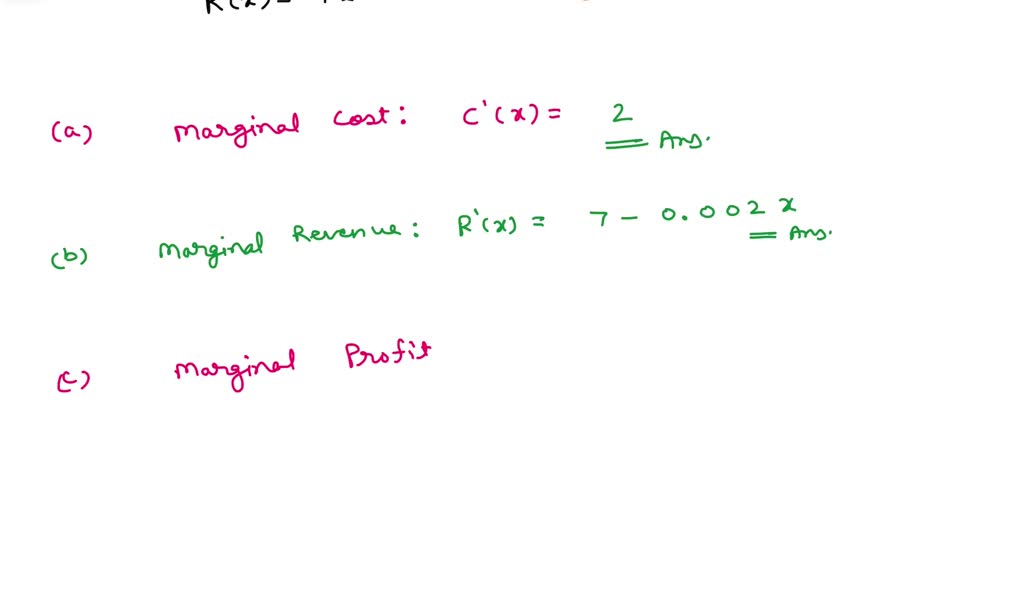 R(x) =
(a) Marginal Cost: C'(x) = 2 Ans.
(b) Marginal Revenue: R'(x) = 7 - 0.002 x Ans.
(c) Marginal Profit